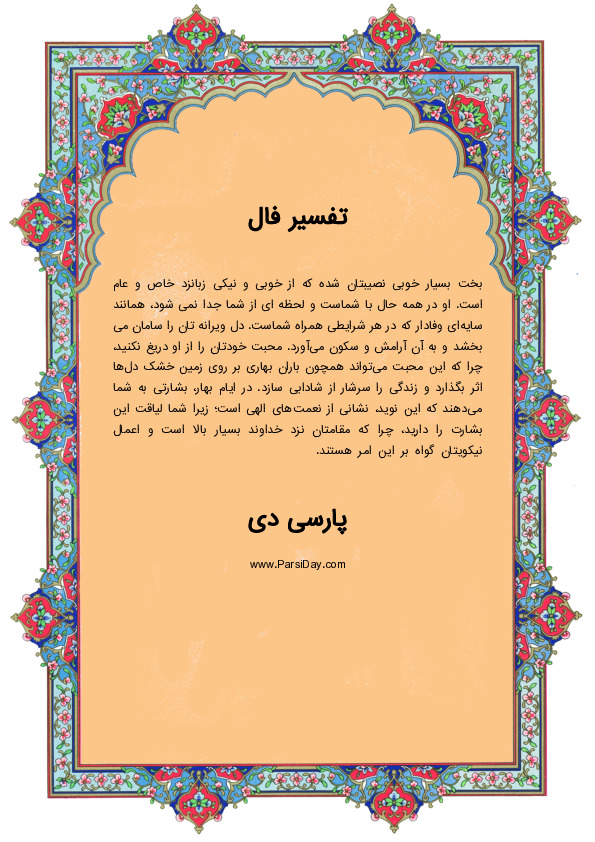 تفسیر فال
بخت بسیار خوبی نصیبتان شده که از خوبی و نیکی زبانزد خاص و عام
است. او در همه حال با شماست و لحظه ای از شما جدا نمی شود، همانند
سایه‌ای وفادار که در هر شرایطی همراه شماست. دل ویرانه تان را سامان می
بخشد و به آن آرامش و سکون می‌آورد. محبت خودتان را از او دریغ نکنید،
چرا که این محبت می‌تواند همچون باران بهاری بر روی زمین خشک دل‌ها
اثر بگذارد و زندگی را سرشار از شادابی سازد. در ایام بهار، بشارتی به شما
می‌دهند که این نوید، نشانی از نعمت‌های الهی است؛ زیرا شما لیاقت این
بشارت را دارید، چرا که مقامتان نزد خداوند بسیار بالا است و اعمال
نیکویتان گواه بر این امر هستند.
پارسی دی
www.ParsiDay.com